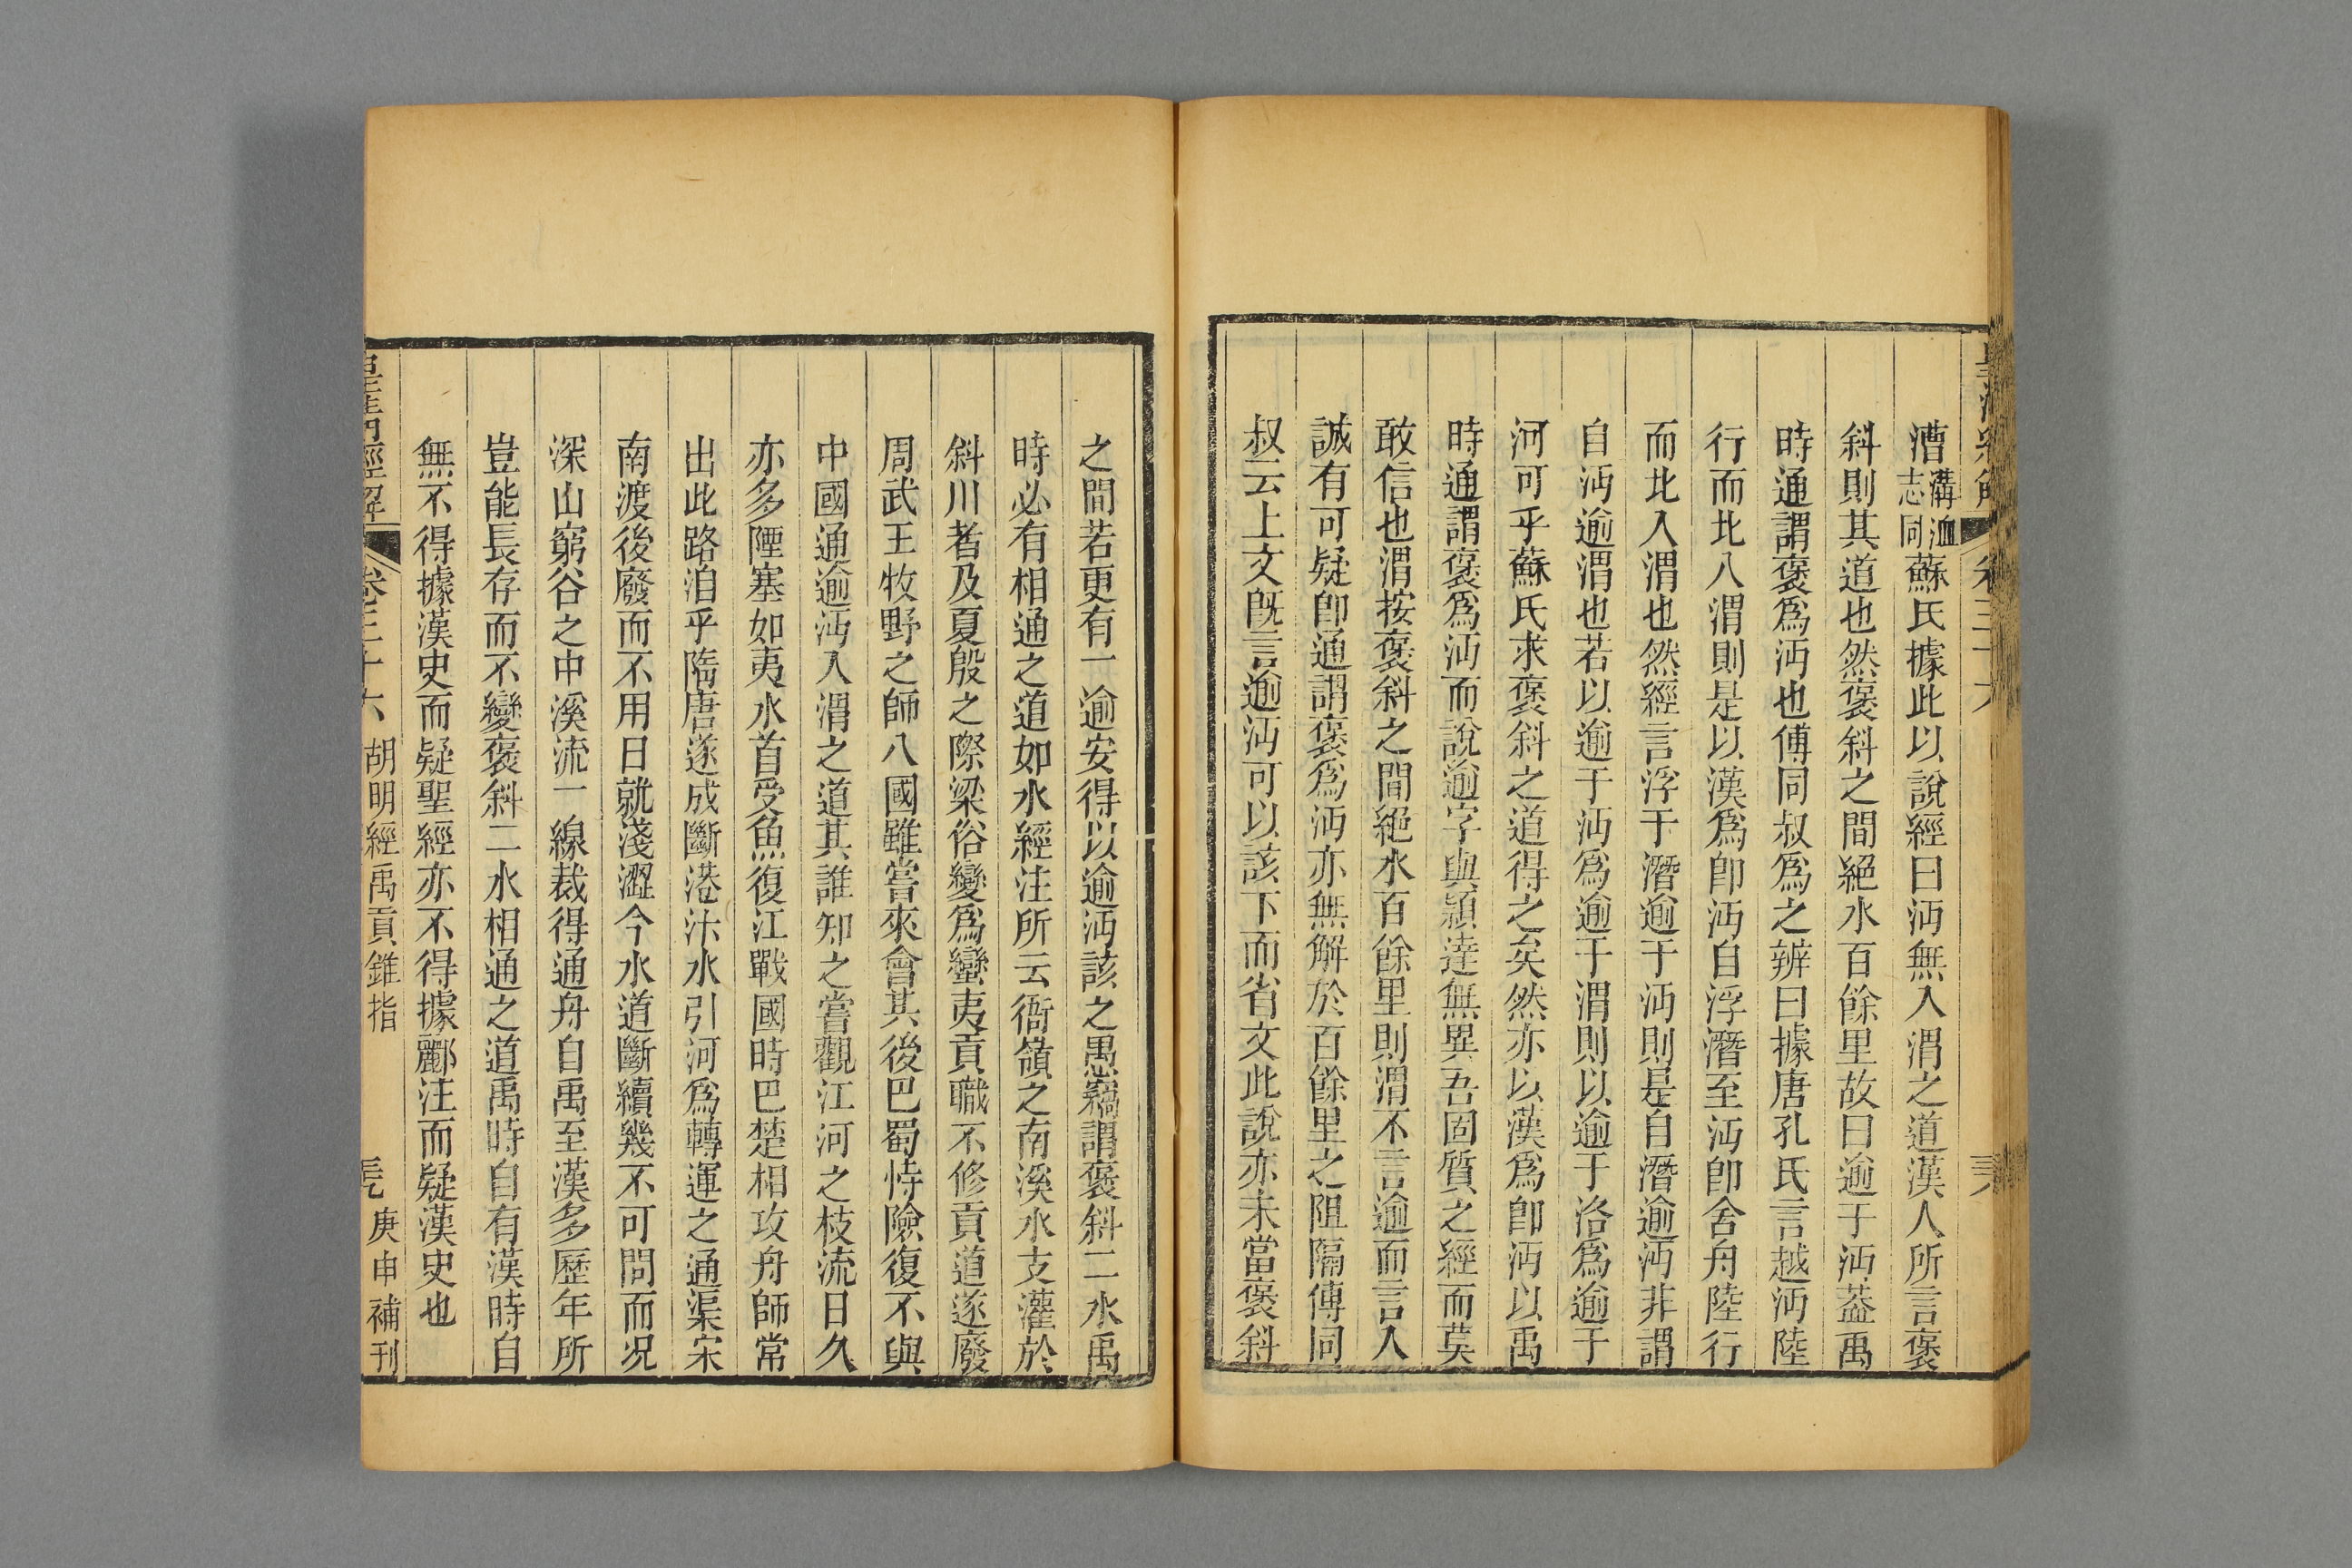 漕溝洫志同蘇氏據此以說經曰沔無入渭之道漢人所言褒
斜則其道也然褒斜之間絕水百餘里故曰逾于沔葢禹
時通謂褒爲沔也傅同叔爲之辨曰據唐孔氏言越沔陸
行而北入渭則是以漢爲卽沔自浮潛至沔卽舍舟陸行
而北入渭也然經言浮于潛逾于沔則是自潛逾沔非謂
自沔逾渭也若以逾于沔爲逾于渭則以逾于洛爲逾于
河可乎蘇氏求褒斜之道得之矣然亦以漢爲卽沔以禹
時通謂褒爲沔而說逾字與潁達無異吾固質之經而莫
敢信也渭按褒斜之間絕水百餘里則渭不言逾而言入
誠有可疑卽通謂褒爲沔亦無解於百餘里之阻隔傅同
叔云上文旣言逾沔可以該下而省文此說亦未當褒斜
之間若更有一逾安得以逾沔該之愚竊謂褒斜二水禹
時必有相通之道如水經注所云衙嶺之南溪水支灌於
斜川者及夏殷之際梁俗變爲蠻夷貢職不修貢道遂廢
周武王牧野之師八國雖嘗來會其後巴蜀恃險復不與
中國通逾沔入渭之道其誰知之嘗觀江河之枝流日久
亦多陻塞如夷水首受魚復江戰國時巴楚相攻舟師常
出此路洎乎隋唐遂成斷港汴水引河爲轉運之通渠宋
南渡後廢而不用日就淺澀今水道斷續幾不可問而况
深山窮谷之中溪流一線裁得通舟自禹至漢多歷年所
豈能長存而不變褒斜二水相通之道禹時自有漢時自
無不得據漢史而疑聖經亦不得據酈注而疑漢史也
皇淸經解 卷三十六 胡明經禹貢錐指 庚申補刊